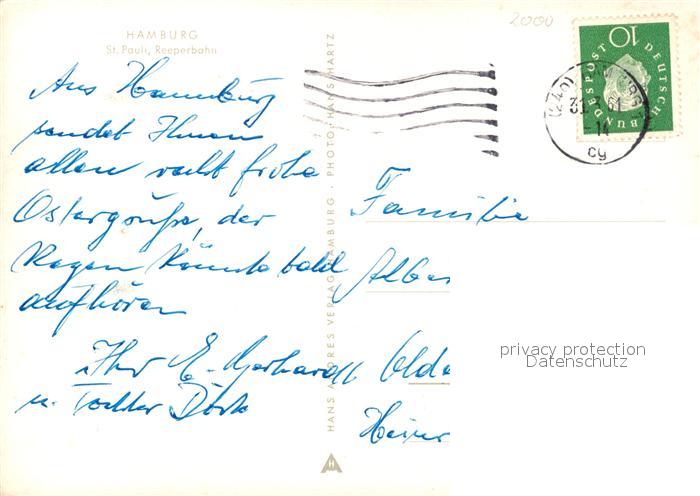 HAMBURG
St. Pauli, Reeperbahn
Aus Hamburg
sendet Ihnen
allen recht frohe
Ostergrüße, der
Regen könnte bald
aufhören
Ihr E. Gerhardt
u. Tochter Dörte
HANS ANDRES VERLAG HAMBURG · PHOTO: HANS HARTZ
2000
DEUTSCHE
BUNDESPOST
10
31.3.61
-14
cy
Familie
Albe
Olde
Hein
privacy protection
Datenschutz